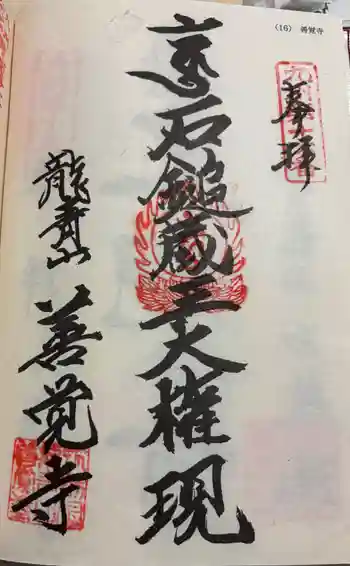 (16) 善覚寺
奉拝
石鎚蔵王大権現
龍寿山
善覚寺